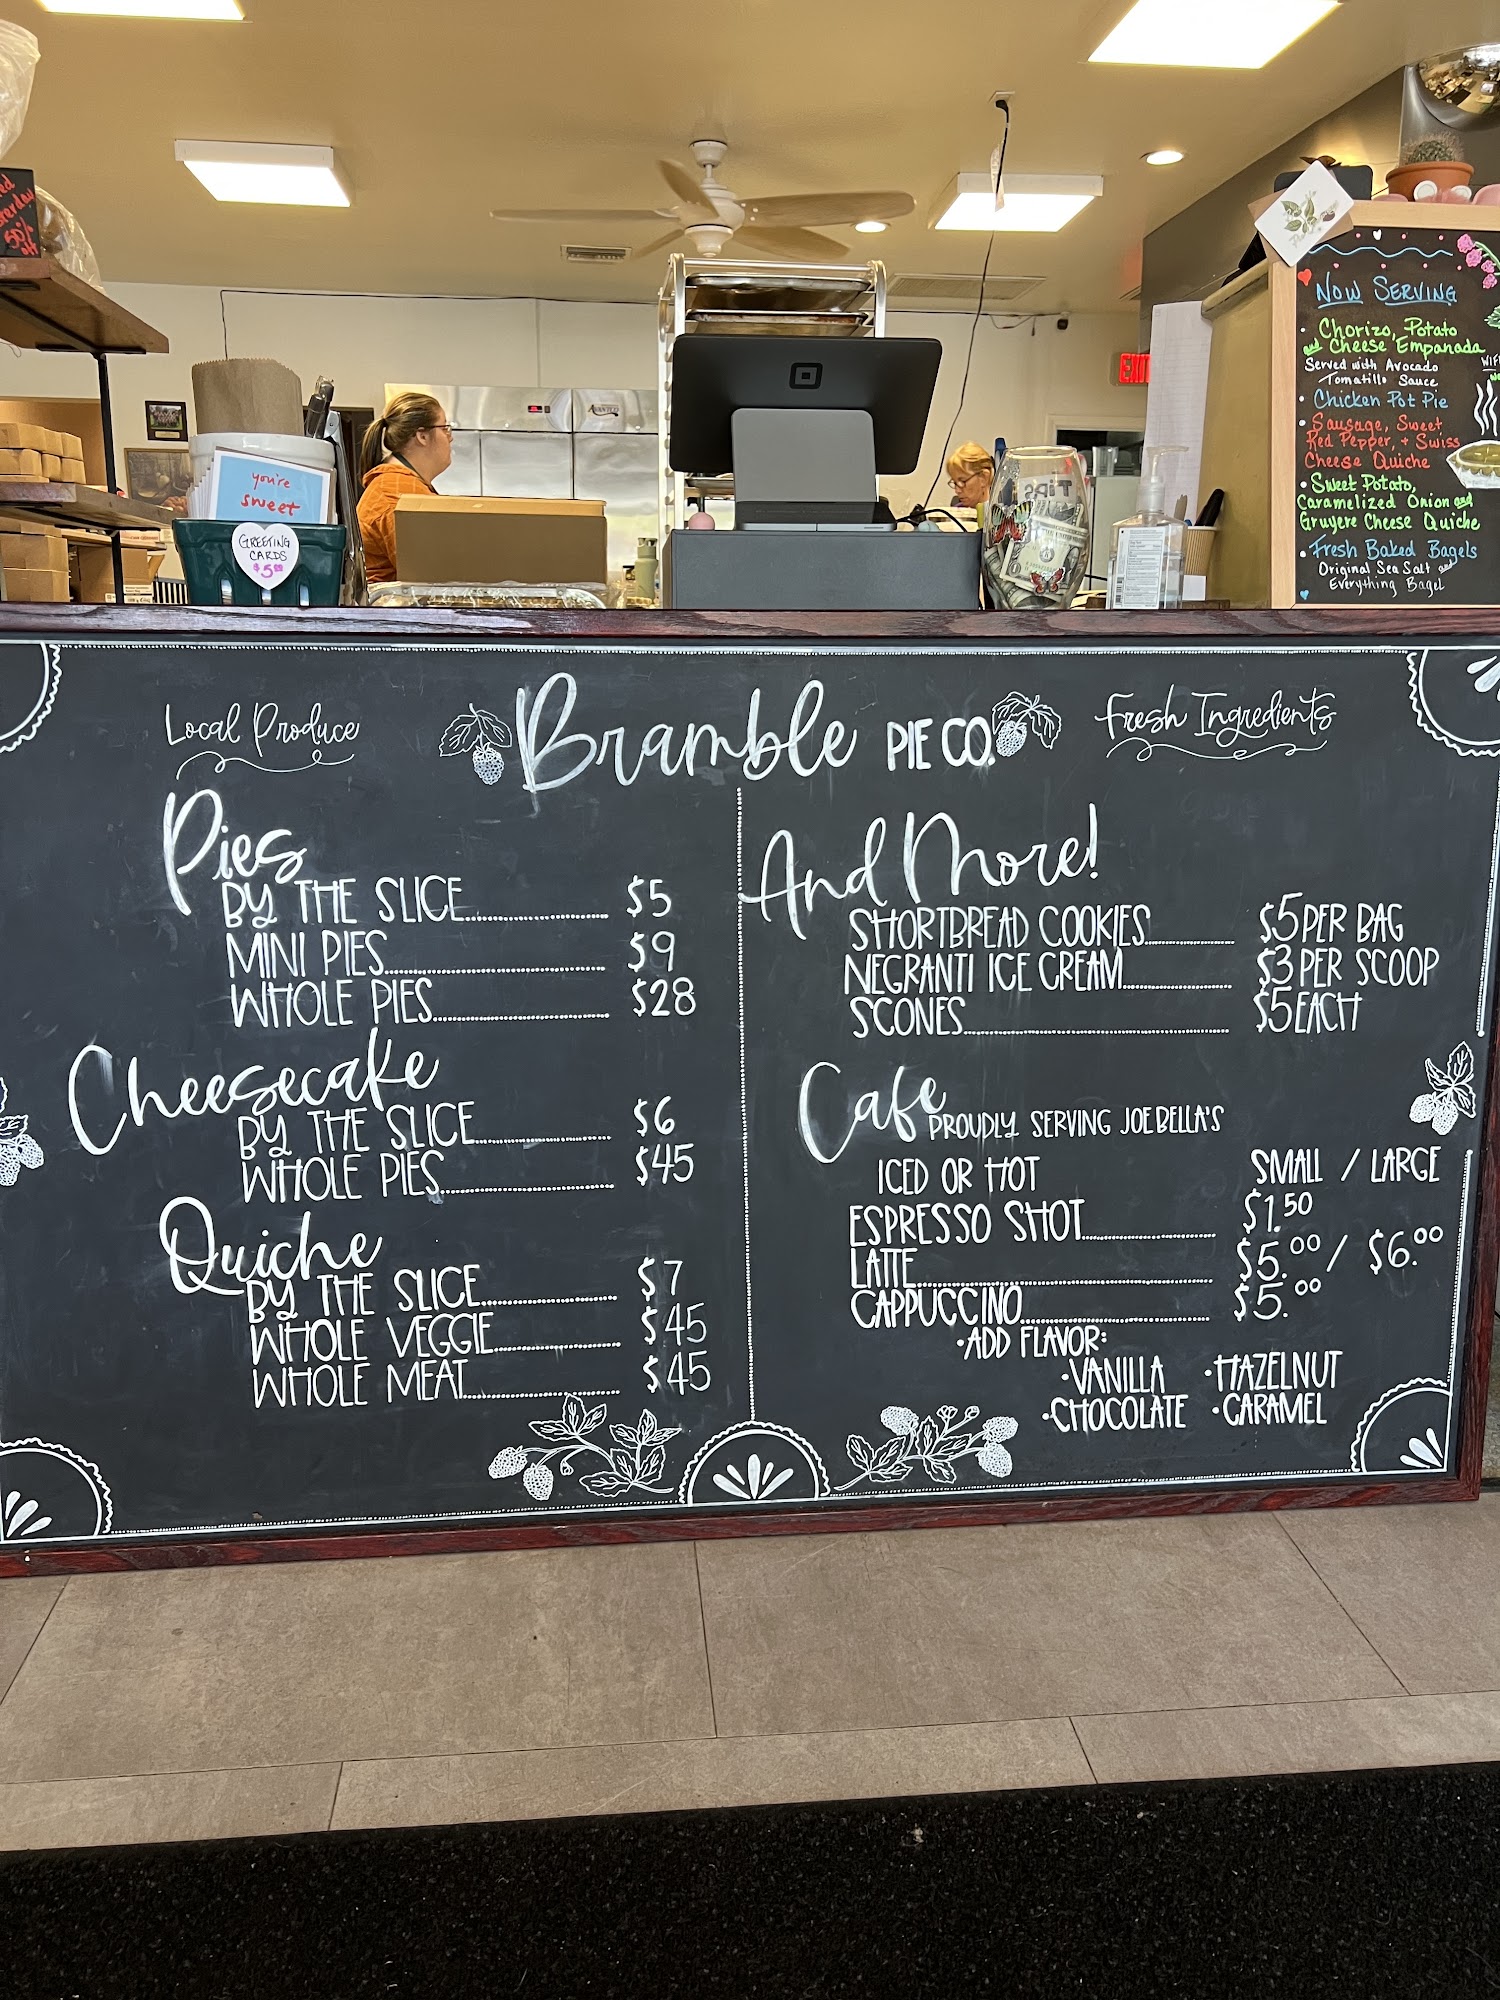 50%
off
AVANTCO
EXIT
you're
sweet
GREETING
CARDS
$5.00
TIPS
NOW SERVING
• Chorizo, Potato
and Cheese Empanada
Served with Avocado
Tomatillo Sauce
• Chicken Pot Pie
• Sausage, Sweet
Red Pepper, + Swiss
Cheese Quiche
• Sweet Potato,
Caramelized Onion and
Gruyere Cheese Quiche
• Fresh Baked Bagels
Original Sea Salt and
Everything Bagel
Local Produce
Bramble PIE CO.
Fresh Ingredients
Pies
BY THE SLICE $5
MINI PIES $9
WHOLE PIES $28
Cheesecake
BY THE SLICE $6
WHOLE PIES $45
Quiche
BY THE SLICE $7
WHOLE VEGGIE $45
WHOLE MEAT $45
And More!
SHORTBREAD COOKIES $5 PER BAG
NEGRANTI ICE CREAM $3 PER SCOOP
SCONES $5 EACH
Cafe PROUDLY SERVING JOEBELLA'S
ICED OR HOT SMALL / LARGE
ESPRESSO SHOT $1.50
LATTE $5.00 / $6.00
CAPPUCCINO $5.00
•ADD FLAVOR:
•VANILLA •HAZELNUT
•CHOCOLATE •CARAMEL